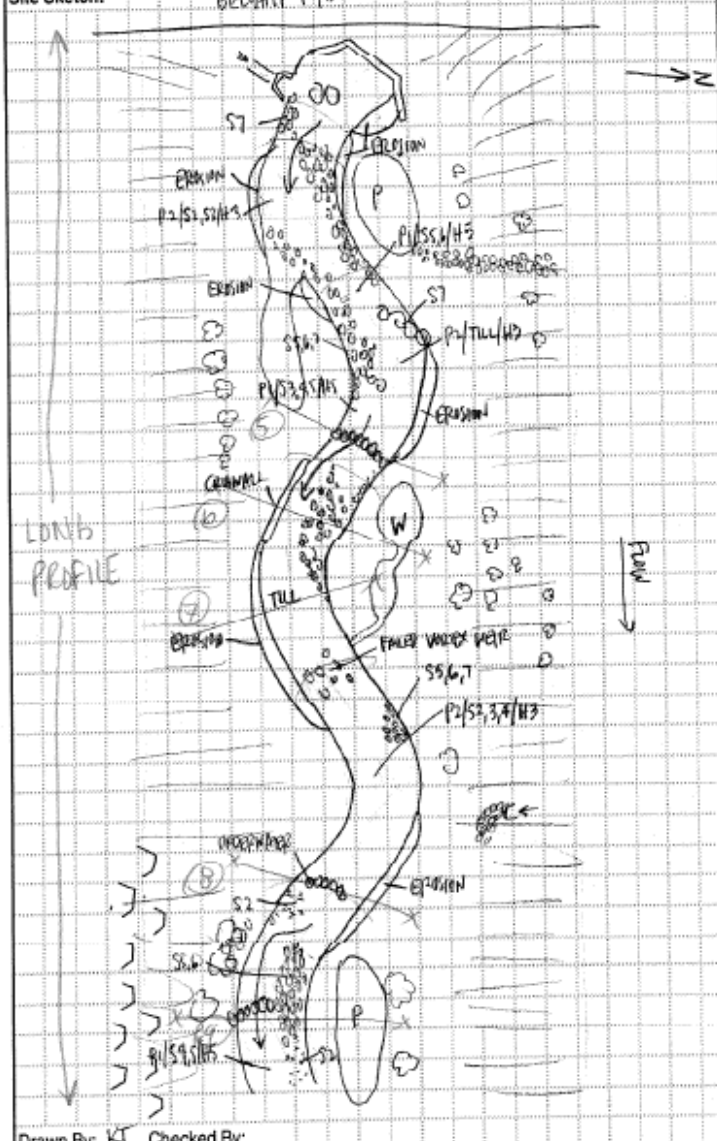 Site Sketch:
N
S7
EROSION
EROSION
P
P2/S2,S3/H3
P1/S5,6/H5
EROSION
S7
S5,6,7
P2/TILL/H3
P1/S3,4,5/H5
EROSION
5
CRIBWALL
6
W
LONG
PROFILE
FLOW
TILL
7
EROSION
FAILED VORTEX WEIR
S5,6,7
P2/S2,3,4/H3
UNDERWATER
8
EROSION
S2
S5,6
P
9
S2
Drawn By: KT Checked By: